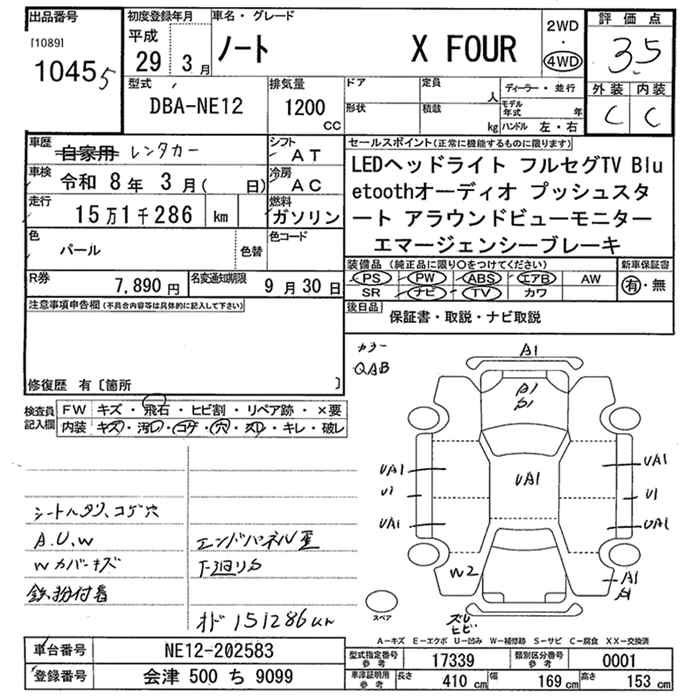 出品番号 初度登録年月 車名・グレード 評価点
[1089] 平成 2WD
10455 29 3月 ノート X FOUR ・ 35
4WD
型式 排気量 ドア 定員 ディーラー・並行 外装 内装
DBA-NE12 1200 人 モデル年式 年 C C
CC 形状 積載 kg ハンドル 左・右
車歴 自家用 レンタカー シフト AT セールスポイント(正常に機能するものに限ります)
車検 令和 8年 3月( 日) 冷房 AC LEDヘッドライト フルセグTV Blu
走行 15万1千286 km 燃料 ガソリン etoothオーディオ プッシュスタ
色 パール 色替 色コード ート アラウンドビューモニター
エマージェンシーブレーキ
R券 7,890円 名変通知期限 9月30日 装備品(純正品に限り○をつけてください) 新車保証書
PS PW ABS エアB AW 有・無
SR ナビ TV カワ
注意事項申告欄(不具合内容等は具体的に記入して下さい) 後日品 保証書・取説・ナビ取説
修復歴 有〔箇所 〕
カラー
QAB
検査員記入欄 FW キズ・飛石・ヒビ割・リペア跡・×要
内装 キズ・汚レ・コゲ・穴・スレ・キレ・破レ
A1
A1
UA1 UA1 UA1
U1 U1
UA1 UA1
W2 A1
シートヘタリ、コゲ穴
A.U.W エンドパネル歪
Wカバーキズ 下廻りサ
鉄粉付着
オド151286km
スペア
ズレ
ヒビ
A-キズ E-エクボ U-凹み W-補修跡 S-サビ C-腐食 XX-交換済
車台番号 NE12-202583 型式指定番号参考 17339 類別区分番号参考 0001
登録番号 会津 500 ち 9099 車庫証明用参考 長さ 410cm 幅 169cm 高さ 153cm